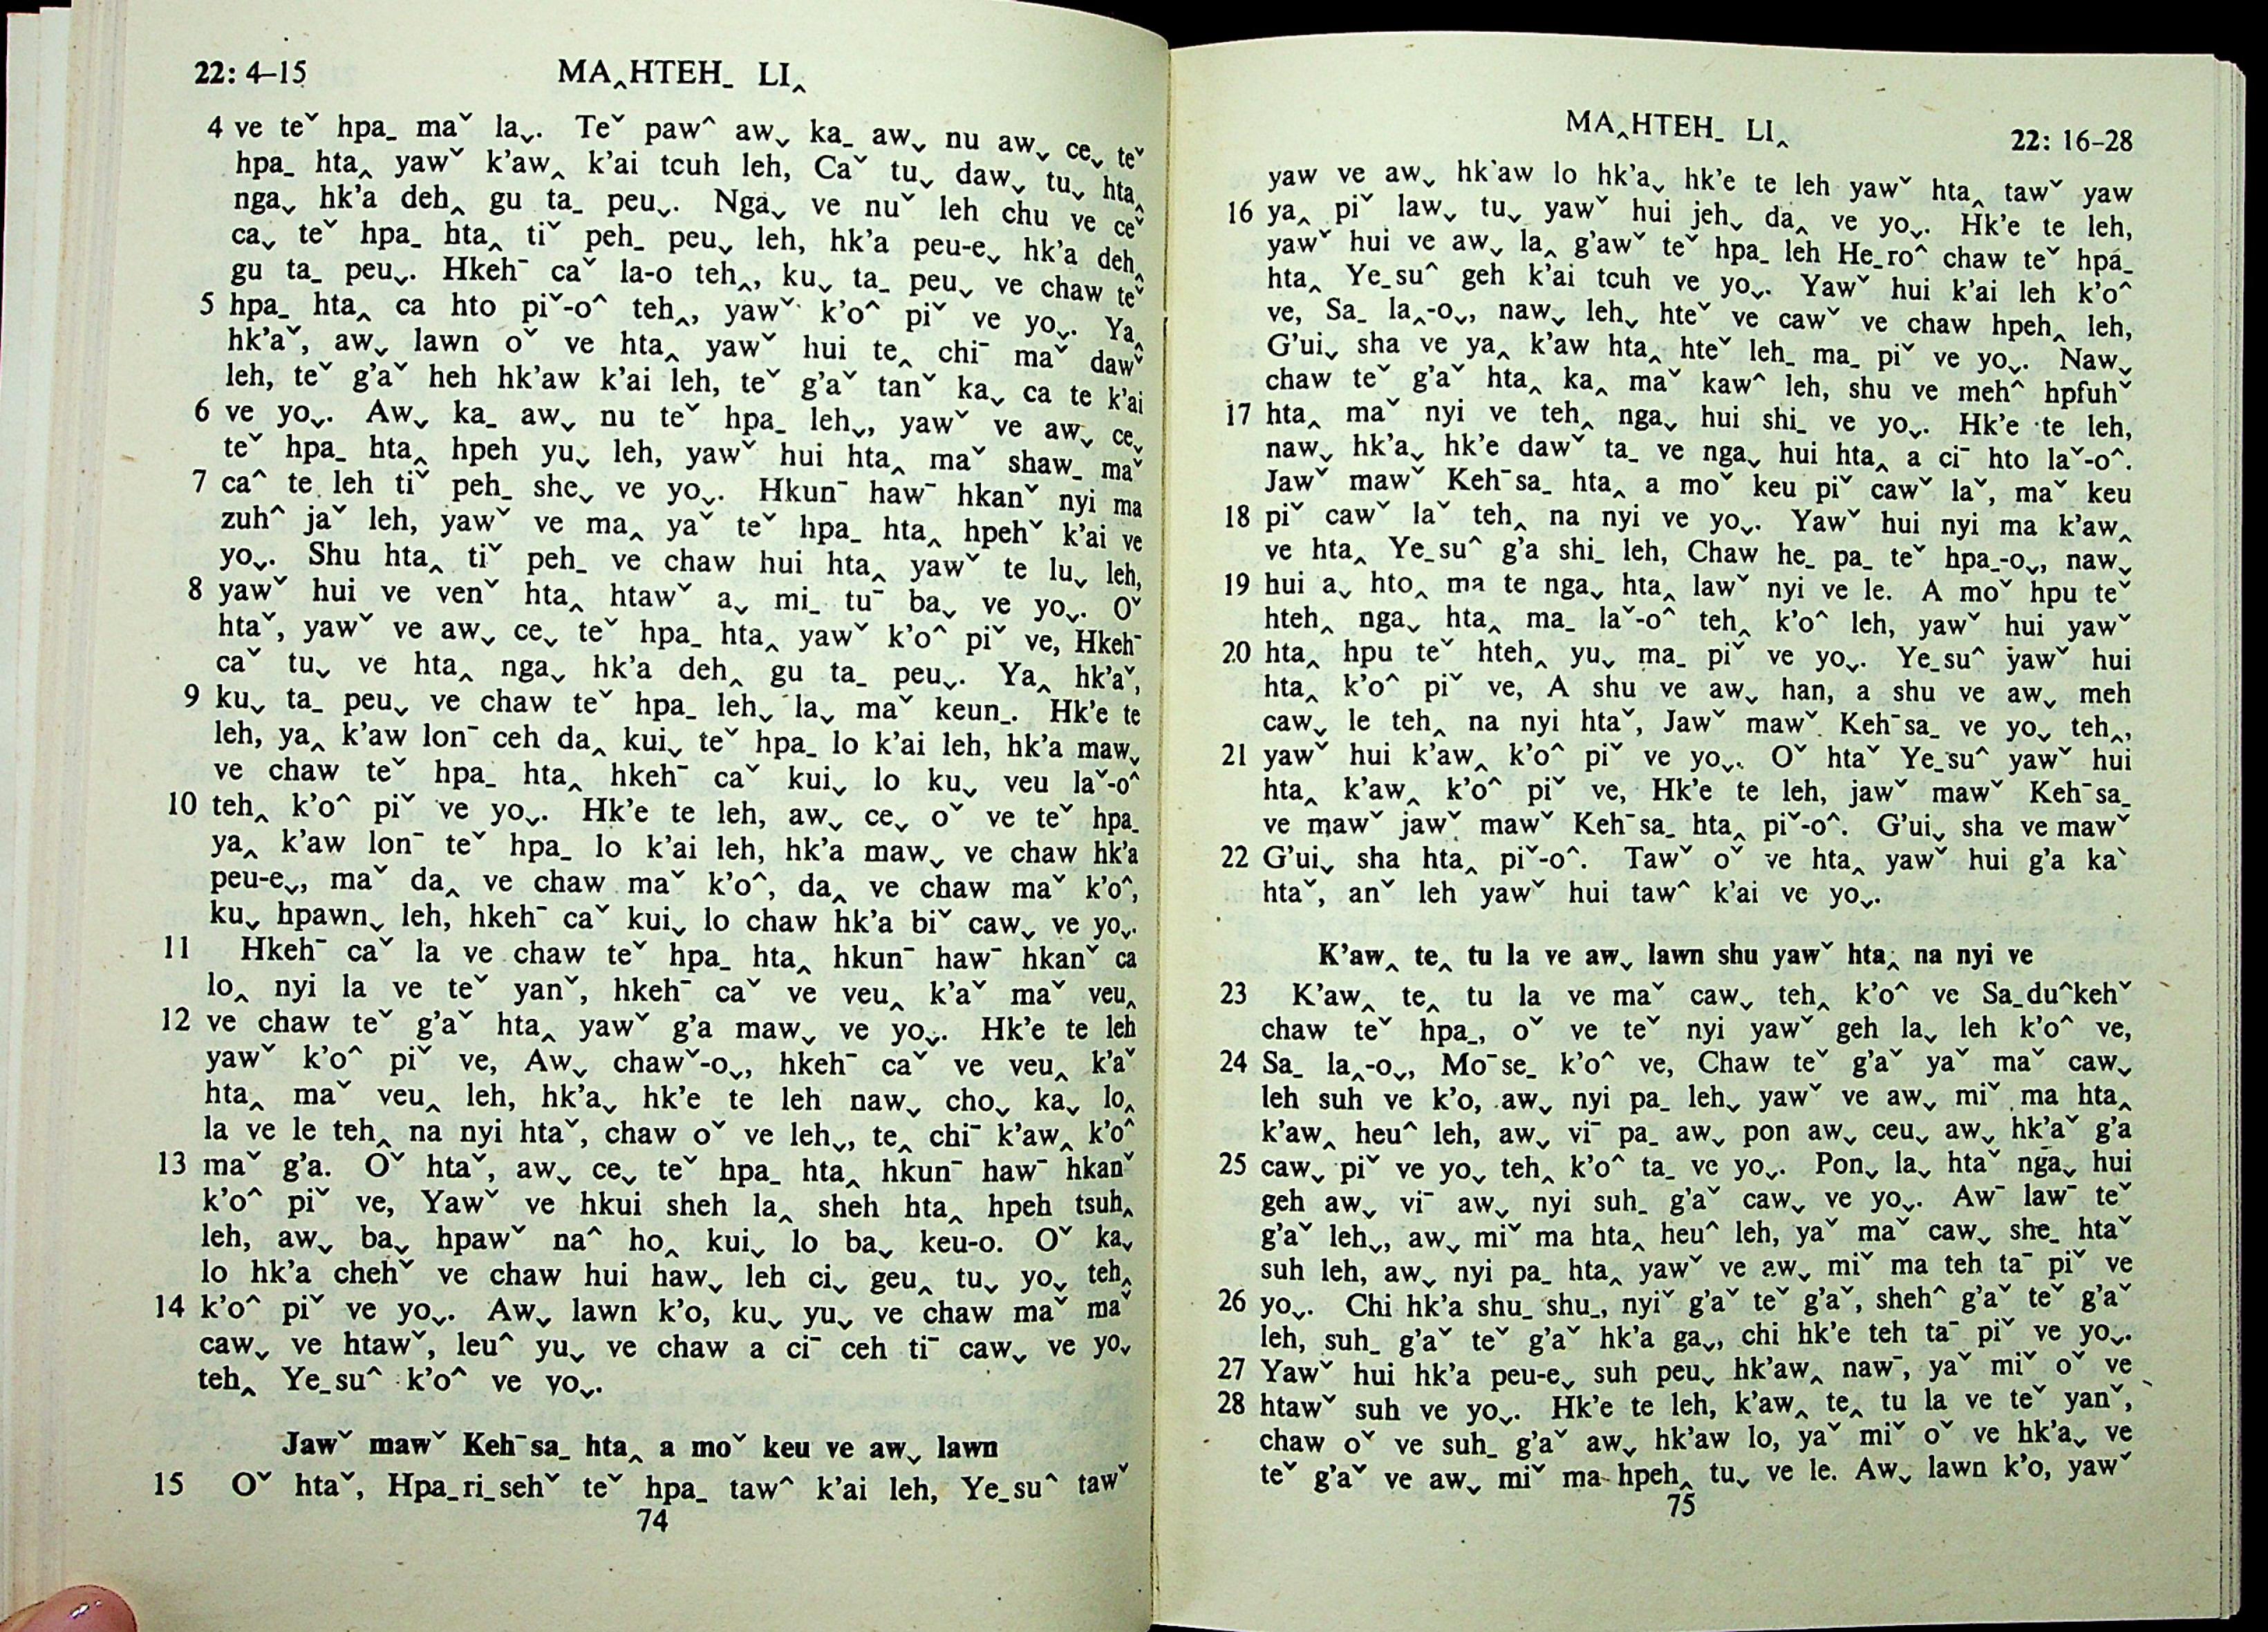 22: 4–15 MA‸HTEH₋ LI‸
4 ve teˇ hpa₋ maˇ laˬ. Teˇ paw^ awˬ ka₋ awˬ nu awˬ ceˬ teˇ
hpa₋ hta‸ yawˇ k’aw‸ k’ai tcuh leh, Caˇ tuˬ dawˬ tuˬ hta‸
ngaˬ hk’a deh‸ gu ta₋ peuˬ. Ngaˬ ve nuˇ leh chu ve ceˇ
caˬ teˇ hpa₋ hta‸ tiˇ peh₋ peuˬ leh, hk’a peu-eˬ hk’a deh‸
gu ta₋ peuˬ. Hkehˉ caˇ la-o teh‸, kuˬ ta₋ peuˬ ve chaw teˇ
5 hpa₋ hta‸ ca hto piˇ-o^ teh‸, yawˇ k’o^ piˇ ve yoˬ. Ya‸
hk’aˇ, awˬ lawn oˇ ve hta‸ yawˇ hui te‸ chiˉ maˇ dawˇ
leh, teˇ g’aˇ heh hk’aw k’ai leh, teˇ g’aˇ tanˇ kaˬ ca te k’ai
6 ve yoˬ. Awˬ ka₋ awˬ nu teˇ hpa₋ lehˬ, yawˇ ve awˬ ceˬ
teˇ hpa₋ hta‸ hpeh yuˬ leh, yawˇ hui hta‸ maˇ shaw₋ maˇ
7 ca^ te leh tiˇ peh₋ sheˬ ve yoˬ. Hkunˉ hawˉ hkanˇ nyi ma
zuh^ jaˇ leh, yawˇ ve ma‸ yaˇ teˇ hpa₋ hta‸ hpehˇ k’ai ve
yoˬ. Shu hta‸ tiˇ peh₋ ve chaw hui hta‸ yawˇ te luˬ leh,
8 yawˇ hui ve venˇ hta‸ htawˇ aˬ mi₋ tuˉ baˬ ve yoˬ. Oˇ
htaˇ, yawˇ ve awˬ ceˬ teˇ hpa₋ hta‸ yawˇ k’o^ piˇ ve, Hkehˉ
caˇ tuˬ ve hta‸ ngaˬ hk’a deh‸ gu ta₋ peuˬ. Ya‸ hk’aˇ,
9 kuˬ ta₋ peuˬ ve chaw teˇ hpa₋ lehˬ laˬ maˇ keun₋. Hk’e te
leh, ya‸ k’aw lonˉ ceh da‸ kuiˬ teˇ hpa₋ lo k’ai leh, hk’a mawˬ
ve chaw teˇ hpa₋ hta‸ hkehˉ caˇ kuiˬ lo kuˬ veu laˇ-o^
10 teh‸ k’o^ piˇ ve yoˬ. Hk’e te leh, awˬ ceˬ oˇ ve teˇ hpa₋
ya‸ k’aw lonˉ teˇ hpa₋ lo k’ai leh, hk’a mawˬ ve chaw hk’a
peu-eˬ, maˇ da‸ ve chaw maˇ k’o^, da‸ ve chaw maˇ k’o^,
kuˬ hpawnˬ leh, hkehˉ caˇ kuiˬ lo chaw hk’a biˇ cawˬ ve yoˬ.
11 Hkehˉ caˇ la ve chaw teˇ hpa₋ hta‸ hkunˉ hawˉ hkanˇ ca
lo‸ nyi la ve teˇ yanˇ, hkehˉ caˇ ve veu‸ k’aˇ maˇ veu‸
12 ve chaw teˇ g’aˇ hta‸ yawˇ g’a mawˬ ve yoˬ. Hk’e te leh
yawˇ k’o^ piˇ ve, Awˬ chawˇ-oˬ, hkehˉ caˇ ve veu‸ k’aˇ
hta‸ maˇ veu‸ leh, hk’aˬ hk’e te leh nawˬ choˬ kaˬ lo‸
la ve le teh‸ na nyi htaˇ, chaw oˇ ve lehˬ, te‸ chiˉ k’aw‸ k’o^
13 maˇ g’a. Oˇ htaˇ, awˬ ceˬ teˇ hpa₋ hta‸ hkunˉ hawˉ hkanˇ
k’o^ piˇ ve, Yawˇ ve hkui sheh la‸ sheh hta‸ hpeh tsuh‸
leh, awˬ baˬ hpawˇ na^ ho‸ kuiˬ lo baˬ keu-o. Oˇ kaˬ
lo hk’a chehˇ ve chaw hui hawˬ leh ciˬ geu‸ tuˬ yoˬ teh‸
14 k’o^ piˇ ve yoˬ. Awˬ lawn k’o, kuˬ yuˬ ve chaw maˇ maˇ
cawˬ ve htawˇ, leu^ yuˬ ve chaw a ciˉ ceh tiˉ cawˬ ve yoˬ
teh‸ Ye₋su^ k’o^ ve yoˬ.
Jawˇ mawˇ Kehˉsa₋ hta‸ a moˇ keu ve awˬ lawn
15 Oˇ htaˇ, Hpa₋ri₋sehˇ teˇ hpa₋ taw^ k’ai leh, Ye₋su^ tawˇ
74
MA‸HTEH₋ LI‸ 22: 16–28
yaw ve awˬ hk’aw lo hk’aˬ hk’e te leh yawˇ hta‸ tawˇ yaw
16 ya‸ piˇ lawˬ tuˬ yawˇ hui jehˬ da‸ ve yoˬ. Hk’e te leh,
yawˇ hui ve awˬ la‸ g’awˇ teˇ hpa₋ leh He₋ro^ chaw teˇ hpa₋
hta‸ Ye₋su^ geh k’ai tcuh ve yoˬ. Yawˇ hui k’ai leh k’o^
ve, Sa₋ la‸-oˬ, nawˬ lehˬ hteˇ ve cawˇ ve chaw hpeh‸ leh,
G’uiˬ sha ve ya‸ k’aw hta‸ hteˇ leh₋ ma₋ piˇ ve yoˬ. Nawˬ
chaw teˇ g’aˇ hta‸ ka‸ maˇ kaw^ leh, shu ve meh^ hpfuhˇ
17 hta‸ maˇ nyi ve teh‸ ngaˬ hui shi₋ ve yoˬ. Hk’e te leh,
nawˬ hk’aˬ hk’e dawˇ ta₋ ve ngaˬ hui hta‸ a ciˉ hto laˇ-o^.
Jawˇ mawˇ Kehˉsa₋ hta‸ a moˇ keu piˇ cawˇ laˇ, maˇ keu
18 piˇ cawˇ laˇ teh‸ na nyi ve yoˬ. Yawˇ hui nyi ma k’aw‸
ve hta‸ Ye₋su^ g’a shi₋ leh, Chaw he₋ pa₋ teˇ hpa₋-oˬ, nawˬ
19 hui aˬ hto‸ ma te ngaˬ hta‸ lawˇ nyi ve le. A moˇ hpu teˇ
hteh‸ ngaˬ hta‸ ma₋ laˇ-o^ teh‸ k’o^ leh, yawˇ hui yawˇ
20 hta‸ hpu teˇ hteh‸ yuˬ ma₋ piˇ ve yoˬ. Ye₋su^ yawˇ hui
hta‸ k’o^ piˇ ve, A shu ve awˬ han, a shu ve awˬ meh
cawˬ le teh‸ na nyi htaˇ, Jawˇ mawˇ Kehˉsa₋ ve yoˬ teh‸,
21 yawˇ hui k’aw‸ k’o^ piˇ ve yoˬ. Oˇ htaˇ Ye₋su^ yawˇ hui
hta‸ k’aw‸ k’o^ piˇ ve, Hk’e te leh, jawˇ mawˇ Kehˉsa₋
ve mawˇ jawˇ mawˇ Kehˉsa₋ hta‸ piˇ-o^. G’uiˬ sha ve mawˇ
22 G’uiˬ sha hta‸ piˇ-o^. Tawˇ oˇ ve hta‸ yawˇ hui g’a kaˋ
htaˇ, anˇ leh yawˇ hui taw^ k’ai ve yoˬ.
K’aw‸ te‸ tu la ve awˬ lawn shu yawˇ hta‸ na nyi ve
23 K’aw‸ te‸ tu la ve maˇ cawˬ teh‸ k’o^ ve Sa₋du^kehˇ
chaw teˇ hpa₋, oˇ ve teˇ nyi yawˇ geh laˬ leh k’o^ ve,
24 Sa₋ la‸-oˬ, Moˉse₋ k’o^ ve, Chaw teˇ g’aˇ yaˇ maˇ cawˬ
leh suh ve k’o, awˬ nyi pa₋ lehˬ yawˇ ve awˬ miˇ ma hta‸
k’aw‸ heu^ leh, awˬ viˉ pa₋ awˬ pon awˬ ceuˬ awˬ hk’aˇ g’a
25 cawˬ piˇ ve yoˬ teh‸ k’o^ ta₋ ve yoˬ. Ponˬ laˬ htaˇ ngaˬ hui
geh awˬ viˉ awˬ nyi suh₋ g’aˇ cawˬ ve yoˬ. Awˉ lawˉ teˇ
g’aˇ lehˬ, awˬ miˇ ma hta‸ heu^ leh, yaˇ maˇ cawˬ she₋ htaˇ
suh leh, awˬ nyi pa₋ hta‸ yawˇ ve awˬ miˇ ma teh taˉ piˇ ve
26 yoˬ. Chi hk’a shu₋ shu₋, nyiˇ g’aˇ teˇ g’aˇ, sheh^ g’aˇ teˇ g’aˇ
leh, suh₋ g’aˇ teˇ g’aˇ hk’a gaˬ, chi hk’e teh taˉ piˇ ve yoˬ.
27 Yawˇ hui hk’a peu-eˬ suh peuˬ hk’aw‸ nawˉ, yaˇ miˇ oˇ ve
28 htawˇ suh ve yoˬ. Hk’e te leh, k’aw‸ te‸ tu la ve teˇ yanˇ,
chaw oˇ ve suh₋ g’aˇ awˬ hk’aw lo, yaˇ miˇ oˇ ve hk’aˬ ve
teˇ g’aˇ ve awˬ miˇ ma hpeh‸ tuˬ ve le. Awˬ lawn k’o, yawˇ
75